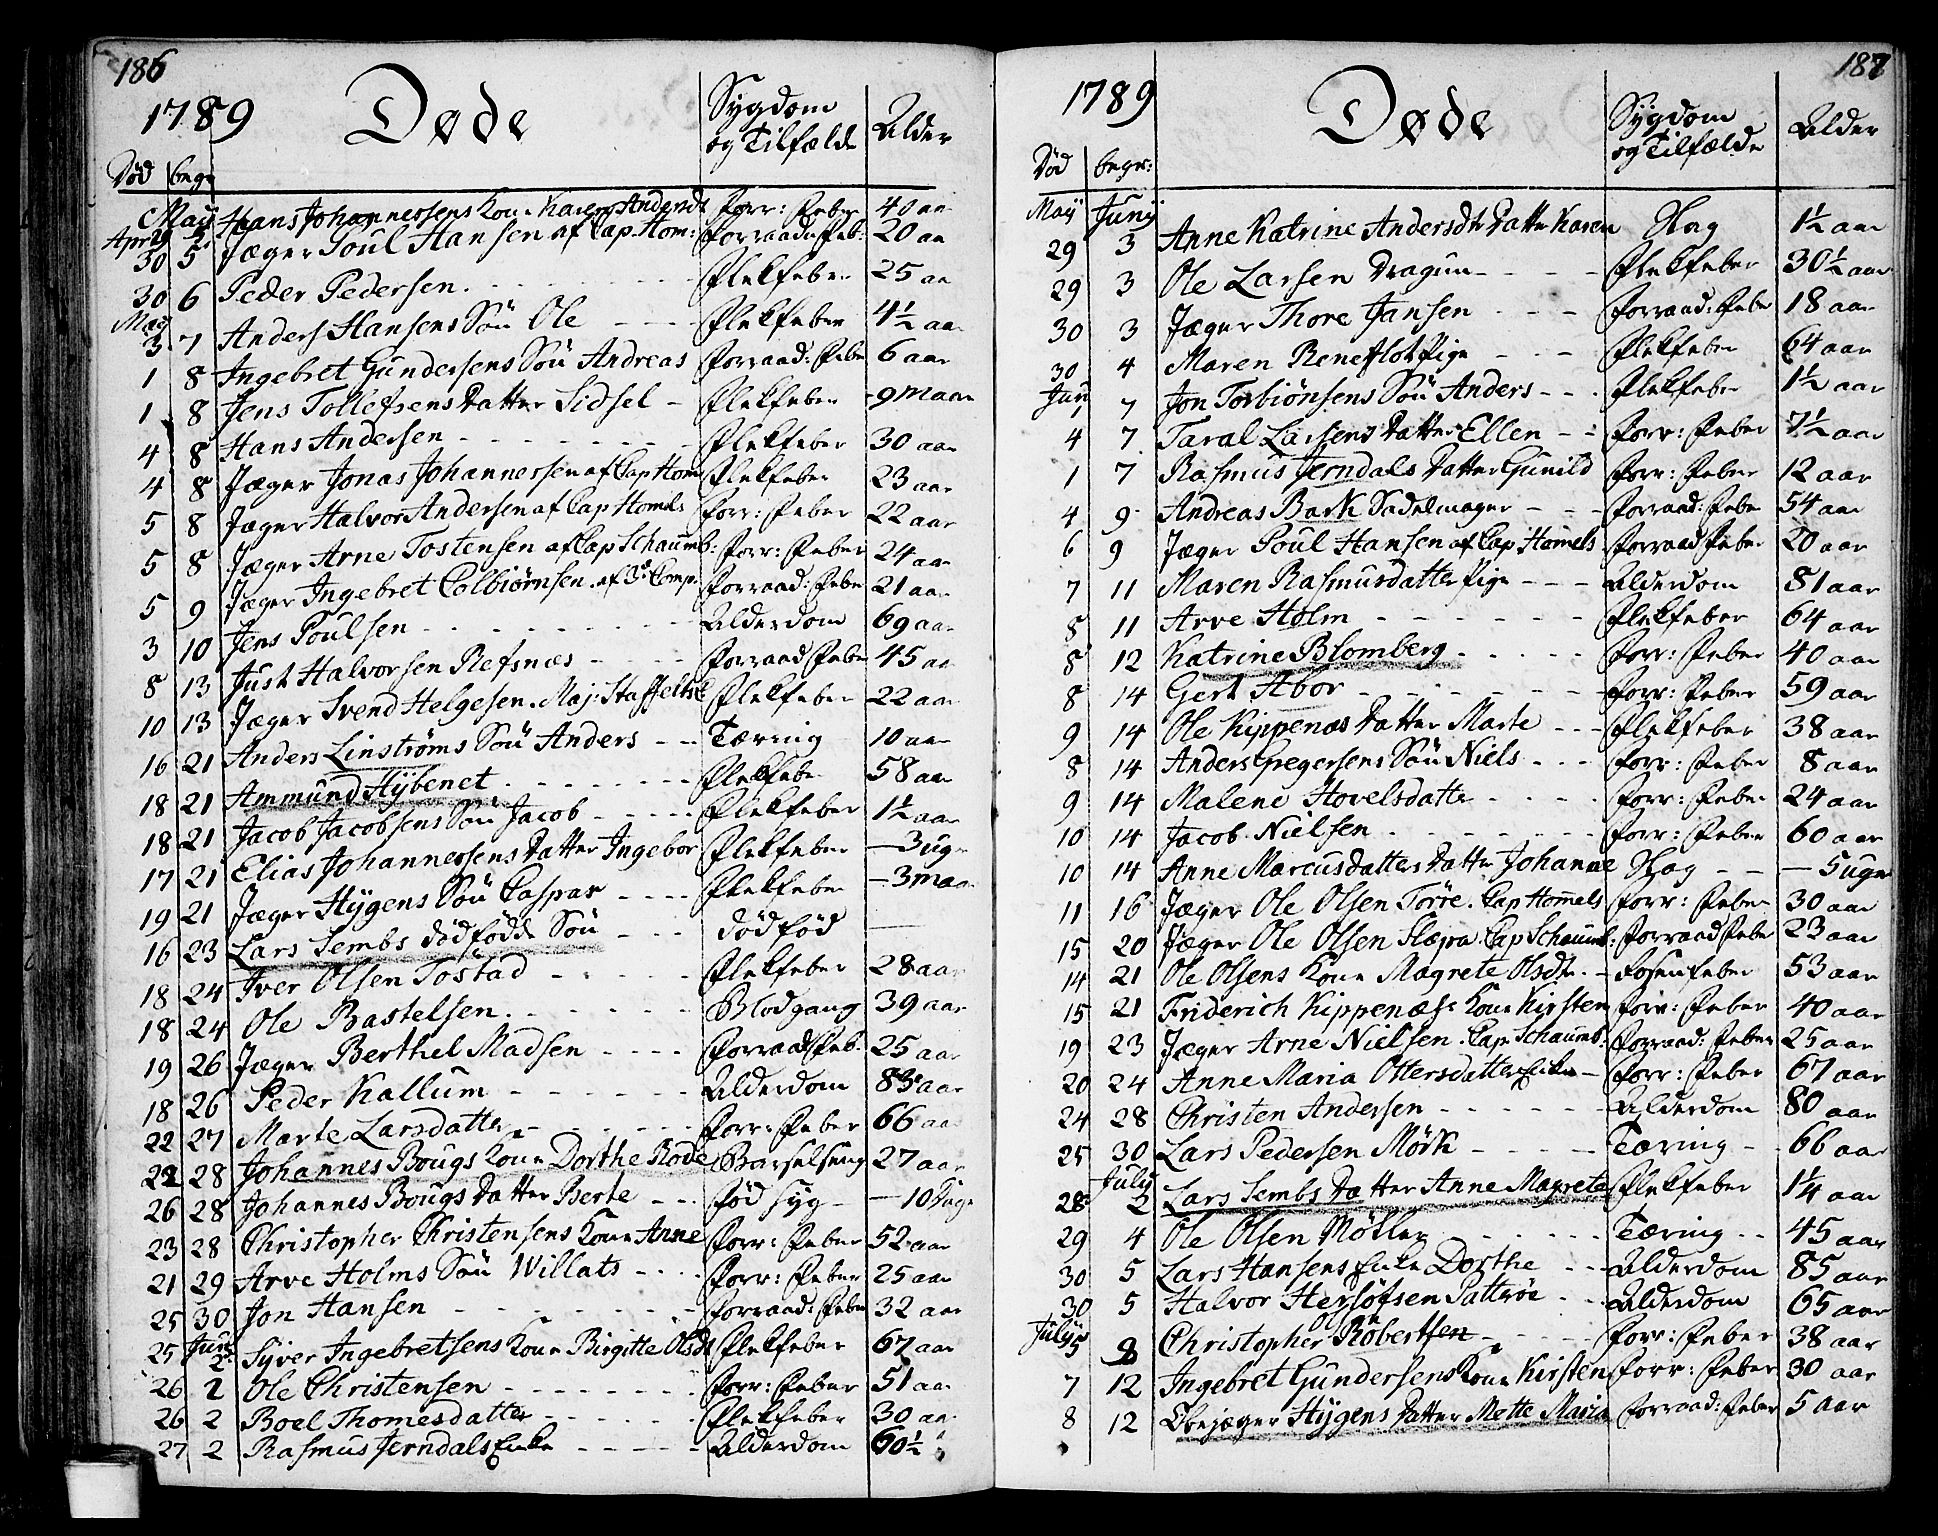 186
1789 Døde Sygdom og Tilfælde Alder
Død begr
May Hans Johannessens Kone Karen Andersdt Forr: Feber 40 aar
Apr 29 5 Jæger Poul Hansen af Cap. Hom: Forraadn: Feb: 20 aar
30 6 Peder Pedersen Flekfeber 25 aar
May
3 7 Anders Hansens Søn Ole Flekfeber 4½ aar
1 8 Ingebret Gundersens Søn Andreas Forraad: Feber 6 aar
1 8 Jens Tollefsens Datter Sidsel Flekfeber 9 maan
4 8 Hans Andersen Flekfeber 30 aar
4 8 Jæger Jonas Johannessen af Cap Hom Flekfeber 23 aar
5 8 Jæger Halvor Andersen af Cap Homels Forr: Feber 22 aar
5 8 Jæger Arne Tostensen af Cap Schaumb: Forr: Feber 24 aar
5 9 Jæger Ingebret Colbiørnsen af 3de Comp. Forraad: Feber 21 aar
3 10 Jens Poulsen Alderdom 69 aar
8 13 Just Halvorsen Refsnæs Forraad Feber 45 aar
10 13 Jæger Svend Helgesen. Maj: Staffeldt Flekfeber 22 aar
16 21 Anders Linstrøms Søn Anders Tæring 10 aar
18 21 Ammund Hÿbenet Flekfeber 58 aar
18 21 Jacob Jacobsens Søn Jacob Flekfeber 1½ aar
17 21 Elias Johannessens Datter Ingebor Flekfeber 3 uger
19 21 Jæger Hÿgens Søn Caspar Flekfeber 3 maan
16 23 Lars Sembs dødfødde Søn dødfød
18 24 Iver Olsen Tostad Flekfeber 28 aar
18 24 Ole Bastelsen Blodgang 39 aar
19 26 Jæger Berthel Madsen Forraad Feb: 25 aar
18 26 Peder Kallum Alderdom 83 aar
22 27 Marte Larsdatter Forr: Feber 66 aar
22 28 Johannes Bougs Kone Dorthe Rode Barselseng 27 aar
26 28 Johannes Bougs Datter Berte Fød syg 10 Dage
23 28 Christopher Christensens Kone Anne Forr: Feber 52 aar
21 29 Arve Holms Søn Willats Forr: Feber 25 aar
25 30 Jon Hansen Forraad: Feber 32 aar
Jun
25 2 Syver Ingebretsens Kone Birgitte Olsdt Flekfeber 67 aar
26 2 Ole Christensen Forr: Feber 51 aar
26 2 Boel Thomesdatter Flekfeber 30 aar
27 2 Rasmus Jerndals Enke Alderdom 60½
187
1789 Døde Sygdom og Tilfælde Alder
Død begr:
Maÿ Junÿ
29 3 Anne Katrine Andersdtr Datter Karen Slag 1½ aar
29 3 Ole Larsen Dragun Flekfeber 30½ aar
30 3 Jæger Thore Jansen Forraad: Feber 18 aar
30 4 Maren Reneflot Pige Flekfeber 64 aar
Jun
1 7 Jon Torbiønsens Søn Anders Flekfeber 1½ aar
4 7 Taral Larsens Datter Ellen Forr: Feber 7½ aar
1 7 Rasmus Jerndals Datter Gunild Forr: Feber 12 aar
4 9 Andreas Bark Sadelmager Forraad: Feber 54 aar
6 9 Jæger Poul Hansen af Cap Homels Forraad Feber 20 aar
7 11 Maren Rasmusdatter Pige Alderdom 81 aar
8 11 Arve Holm Flekfeber 64 aar
8 12 Katrine Blomberg Forr: Feber 40 aar
8 14 Gert Abor Forr: Feber 59 aar
9 14 Ole Kippenæs Datter Marte Flekfeber 38 aar
8 14 Anders Gregersens Søn Niels Forr: Feber 8 aar
9 14 Malene Hovelsdatter Forr: Feber 24 aar
10 14 Jacob Nielsen Forr: Feber 60 aar
10 14 Anne Marcusdatters Datter Johanne Slag 5 uger
11 16 Jæger Ole Olsen Torre. Cap Homels Forr: Feber 30 aar
15 20 Jæger Ole Olsen Slæpa. Cap Schaumb: Forraad Feber 23 aar
14 21 Ole Olsens Kone Magrete Olsdtr Rosenfeber 53 aar
15 21 Friderich Kippenæss Kone Kirsten Forr: Feber 40 aar
19 23 Jæger Arne Nielsen. Cap. Schaumb: Forraad: Feber 25 aar
20 24 Anne Maria Ottersdatter Enke Forr: Feber 67 aar
24 28 Christen Andersen Alderdom 80 aar
25 30 Lars Pedersen Mørk Tæring 66 aar
Julÿ
28 2 Lars Sembs Datter Anne Magrete Flekfeber 1¼ aar
29 4 Ole Olsen Møller Tæring 45 aar
30 5 Lars Hansens Enke Dorthe Alderdom 85 aar
30 5 Halvor Hersøfsen Pattrøe Alderdom 65 aar
Julÿ
5 8 Christopher Robertsen Forr: Feber 38 aar
7 12 Ingebret Gundersens Kone Kirsten Forr: Feber 30 aar
8 12 Obejæger Hÿgens Datter Mette Maria Forraad: Feber 5 aar